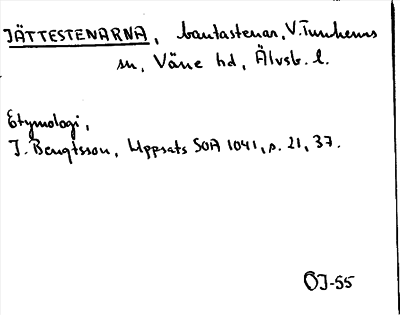 JÄTTESTENARNA, bautastenar, V. Tunhems
sn, Väne hd, Älvsb. l.
Etymologi,
J. Bengtsson, Uppsats SOA 1041, s. 21, 37.
ÖJ-55